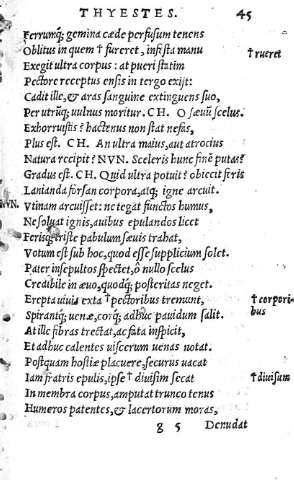 THYESTES. 45
Ferrumq; gemina cæde perfusum tenens
Oblitus in quem † fureret, infesta manu † rueret
Exegit ultra corpus: at pueri statim
Pectore receptus ensis in tergo exijt:
Cadit ille, & aras sanguine extinguens suo,
Per utrunq; uulnus moritur. CH. O sæuū scelus.
Exhorruistis? hactenus non stat nefas,
Plus est. CH. An ultra maius, aut atrocius
Natura recipit? NVN. Sceleris hunc finē putas?
Gradus est. CH. Quid ultra potuit? obiecit feris
Lanianda forsan corpora, atq; igne arcuit.
NVN. Vtinam arcuisset: ne tegat functos humus,
Ne soluat ignis, auibus epulandos licet
Ferisq; triste pabulum sæuis trahat,
Votum est sub hoc, quod esse supplicium solet.
Pater insepultos spectet, ô nullo scelus
Credibile in æuo, quodq; posteritas neget.
Erepta uiuis exta † pectoribus tremunt, † corpori=
bus
Spirantq; uenæ, corq; adhuc pauidum salit.
At ille fibras trectat, ac fata inspicit,
Et adhuc calentes uiscerum uenas notat.
Postquam hostiæ placuere, securus uacat
Iam fratris epulis, ipse † diuisim secat † diuisum
In membra corpus, amputat trunco tenus
Humeros patentes, & lacertorum moras,
g 5 Denudat